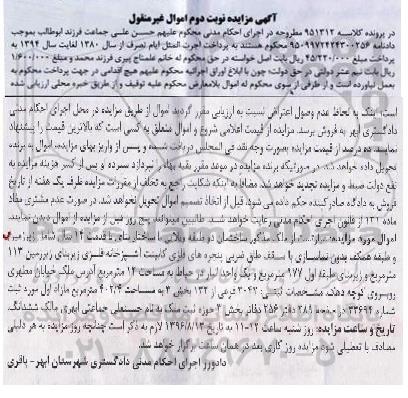 آگهی مزایده نوبت دوم اموال غیرمنقول
در پرونده کلاسه ۹۵۱۳۱۲ مطروحه در اجرای احکام مدنی محکوم علیهم حسن علی جماعت فرزند ابوطالب بموجب
دادنامه ۹۵۰۹۹۷۲۴۲۴۳۰۰۲۵۶ محکوم هستند به پرداخت اجرت المثل ایام تصرف از سال ۱۳۸۰ لغایت سال ۱۳۹۴ به
پرداخت مبلغ ۴۵/۲۲۰/۰۰۰ ریال بابت اصل خواسته در حق محکوم له خانم علمتاج پیری فرزند محمد و مبلغ ۱/۶۰۰/۰۰۰
ریال بابت نیم عشر دولتی در حق دولت؛ چون با ابلاغ اوراق اجرائیه محکوم علیهم هیچ اقدامی در جهت پرداخت محکوم به
بعمل نیاورده است و از طرفی از سوی محکوم له اموال بلامعارض محکوم علیه توقیف و از طریق خبره محلی ارزیابی شده
است، اینک به لحاظ عدم وصول اعتراض نسبت به ارزیابی مقرر گردید اموال از طریق مزایده در محل اجرای احکام مدنی
دادگستری ابهر به فروش برسد. مزایده از قیمت اعلامی شروع و اموال متعلق به کسی است که بالاترین قیمت را پیشنهاد
نمایند. ده درصد از قیمت مزایده بصورت وجه نقد فی المجلس دریافت شده و پس از واریز بهای مزایده، اموال به برنده
تحویل داده خواهد شد. در صورتیکه برنده مزایده در موعد مقرر بقیه بهاء را نپردازد سپرده او پس از کسر هزینه مزایده به
نفع دولت ضبط و مزایده تجدید خواهد شد. مضافا به اینکه شکایت راجع به تخلف از مقررات مزایده ظرف یک هفته از تاریخ
فروش به دادگاه صادرکننده حکم داده می شود، قبل از اتخاذ تصمیم اموال تحویل نخواهد شد. در صورت عدم مشتری مفاد
ماده ۱۳۱ قانون اجرای احکام مدنی رعایت خواهد شد. طالبین میتوانند پنج روز قبل از مزایده از اموال دیدن نمایند.
اموال مورد مزایده: عبارتست از ملک مذکور ساختمان دو طبقه ویلایی با ساختار بنایی با قدمت ۱۴ سال شامل زیرزمین
و طبقه همکف بدون نماسازی با سقف طاق ضربی پنجره های فلزی کابینت آشپزخانه فلزی زیربنای زیرزمین ۱۱۳
مترمربع و زیربنای طبقه اول ۱۷۷ مترمربع و یک واحد انبار در حیاط به مساحت ۱۴ مترمربع آدرس ملک خیابان مطهری
روبروی کوچه دهک. مشخصات ثبتی: ۳۰۴۲ فرعی از ۱۳۲ بخش ۳ به مساحت ۴۰۲/۴ مترمربع مازاد اول مورد ثبت
شماره ۳۳۶۹۴ در صفحه ۲۸۱ دفتر ۲۵۶ دفاتر بخش ۳ حوزه ثبت ملک به نام حسنعلی جماعتی ابهری مالک ششدانگ.
تاریخ و ساعت مزایده: روز شنبه ساعت ۱۲-۱۱ به تاریخ ۱۳۹۶/۸/۱۳ لازم به ذکر است چنانچه روز مزایده به هر دلیلی
مصادف با تعطیلی شود مزایده روز کاری بعد در همان ساعت برگزار خواهد شد.
دادورز اجرای احکام مدنی دادگستری شهرستان ابهر- باقری